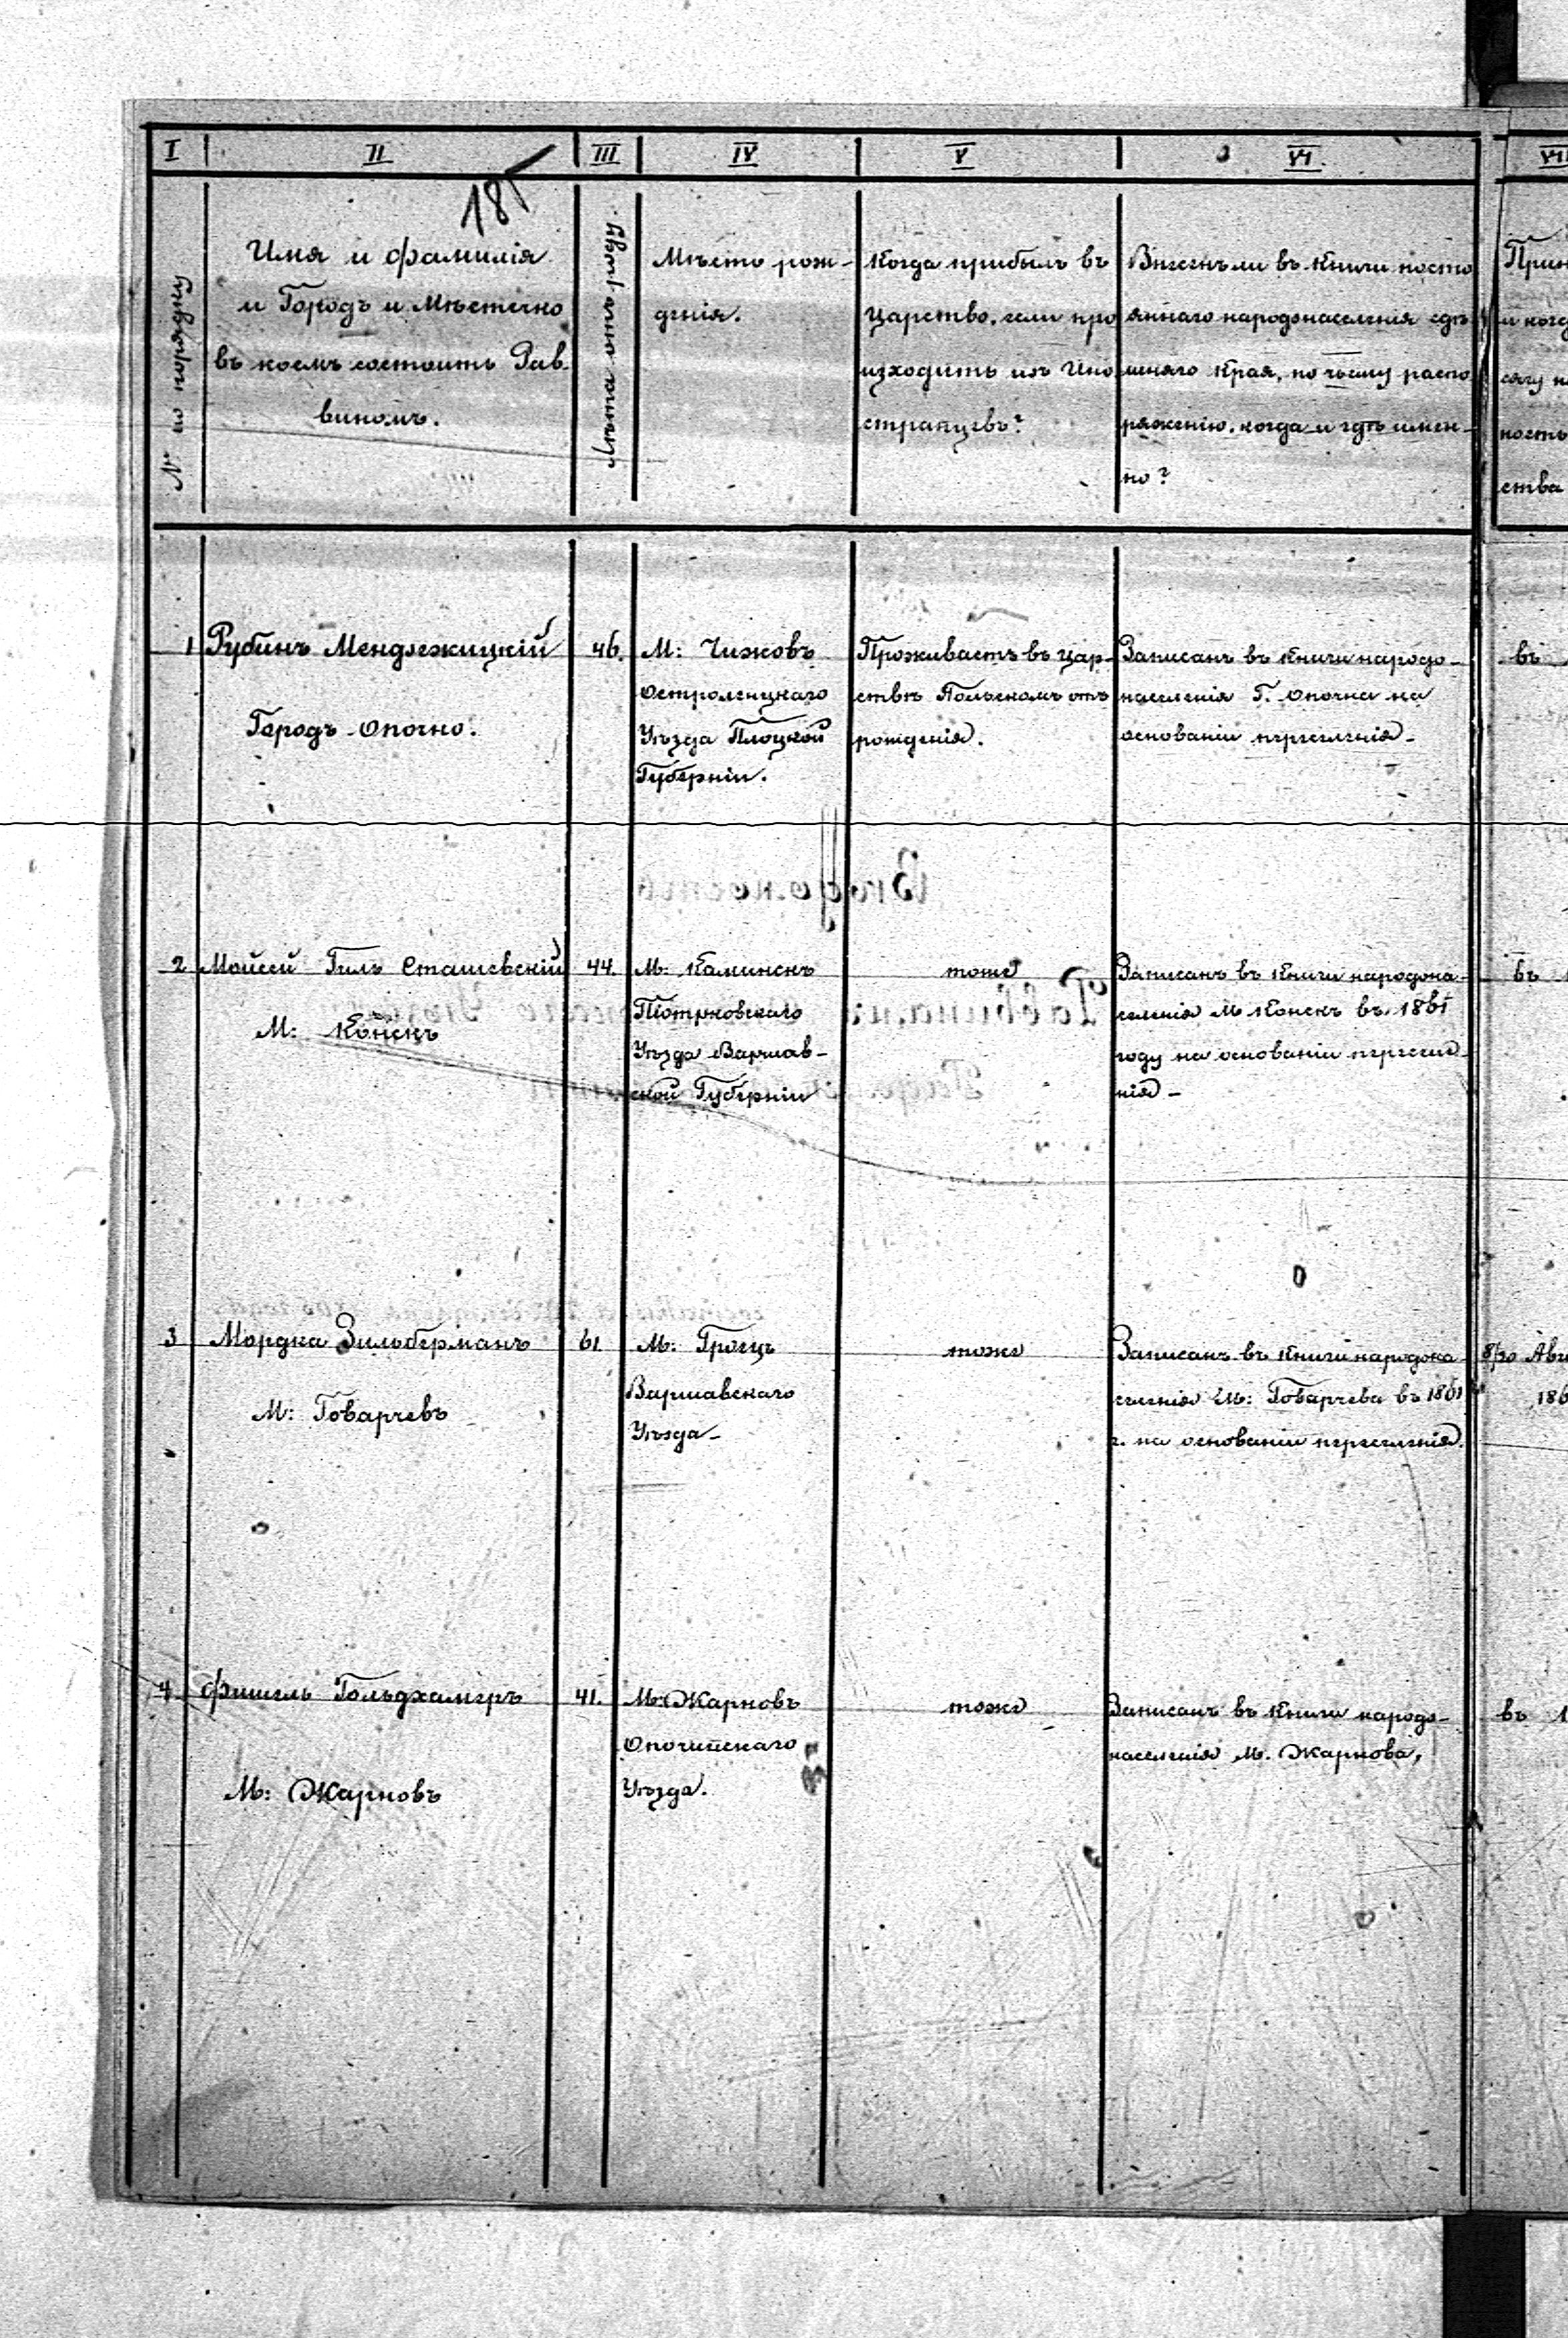 I II III IV V VI. VII
18
№ по порядку
Имя и фамилія
и Городъ и Мѣстечко
въ коемъ состоитъ Рав-
виномъ.
Лѣта отъ роду.
Мѣсто рож-
денія.
Когда прибылъ въ
Царство, если про
изходитъ изъ Ино
странцевъ?
Внесенъ ли въ Книги посто
яннаго народонаселенія здѣ
шняго Края, по чьему распо
ряженію, когда и гдѣ имен-
но?
Прин
и когд
сягу н
ность
ства
1
Рубинъ Менджежицкій
Городъ Опочно.
46.
М: Чижовъ
Остроленцкаго
Уѣзда Плоцкой
Губерніи.
Проживаетъ въ Цар-
ствѣ Польскомъ отъ
рожденія.
Записанъ въ Книги народо-
населенія Г. Опочна на
основаніи переселенія-
въ
2
Мойсей Гиль Сташевскій
М: Конскъ
44.
М: Каминскъ
Піотрковскаго
Уѣзда Варшав-
ской Губерніи
тоже
Записанъ въ Книги народона-
селенія М Конскъ въ 1861
году на основаніи переселе-
нія-
въ 1
3
Мордка Зильберманъ
М: Говарчевъ
61.
М: Гроецъ
Варшавскаго
Уѣзда-
тоже
Записанъ въ Книги народона-
селенія М: Говарчева въ 1861
г. на основаніи переселенія.
8/20 Авг
186
4.
Фишель Гольдхамеръ
М: Жарновъ
41.
М: Жарновъ
Опочинскаго
Уѣзда.
тоже
Записанъ въ Книги народо-
населенія М. Жарнова,
въ 1